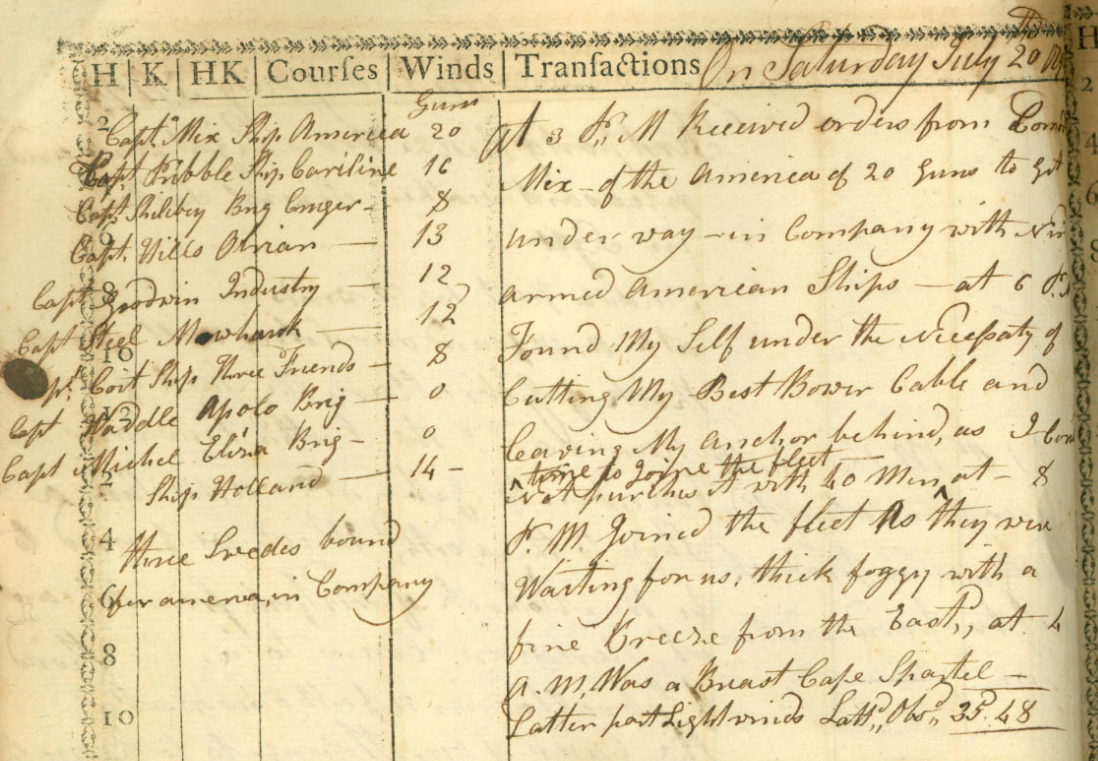 H K HK Courses Winds Transactions On Saturday July 20
Guns
2 Capt. Mix Ship America 20
Capt. Kibble Ship Cariline 16
Capt. Brig 8
Capt. Hills 13
8 Capt Goodwin Industry — 12
Capt Steel Mowhank — 12
10
Coit Ship Three Friends — 8
12
Capt Waddle Apolo Brig — 0
Capt Michel Eliza Brig — 0
2
Ship Holland — 14 —
4 three Swedes bound
6 for america, in Company
8
10
At 3 P. M Received orders from
Mix — of the America of 20 Guns to git
under way — in Company with
armed American Ships — at 6
Found My Self under the Necessaty of
Cutting My Best Bower Cable and
leaving My Anchor behind, as I
time to Joine the fleet —
Not purches it with 40 Men at — 8
P. M Joined the fleet As they were
Waiting for us, thick foggy with a
fine Breeze from the Eastd,, at 4
A. M, Was a Breast Cape Spartel —
Latter part Light winds Lattd,, Obsd,, 35. 48